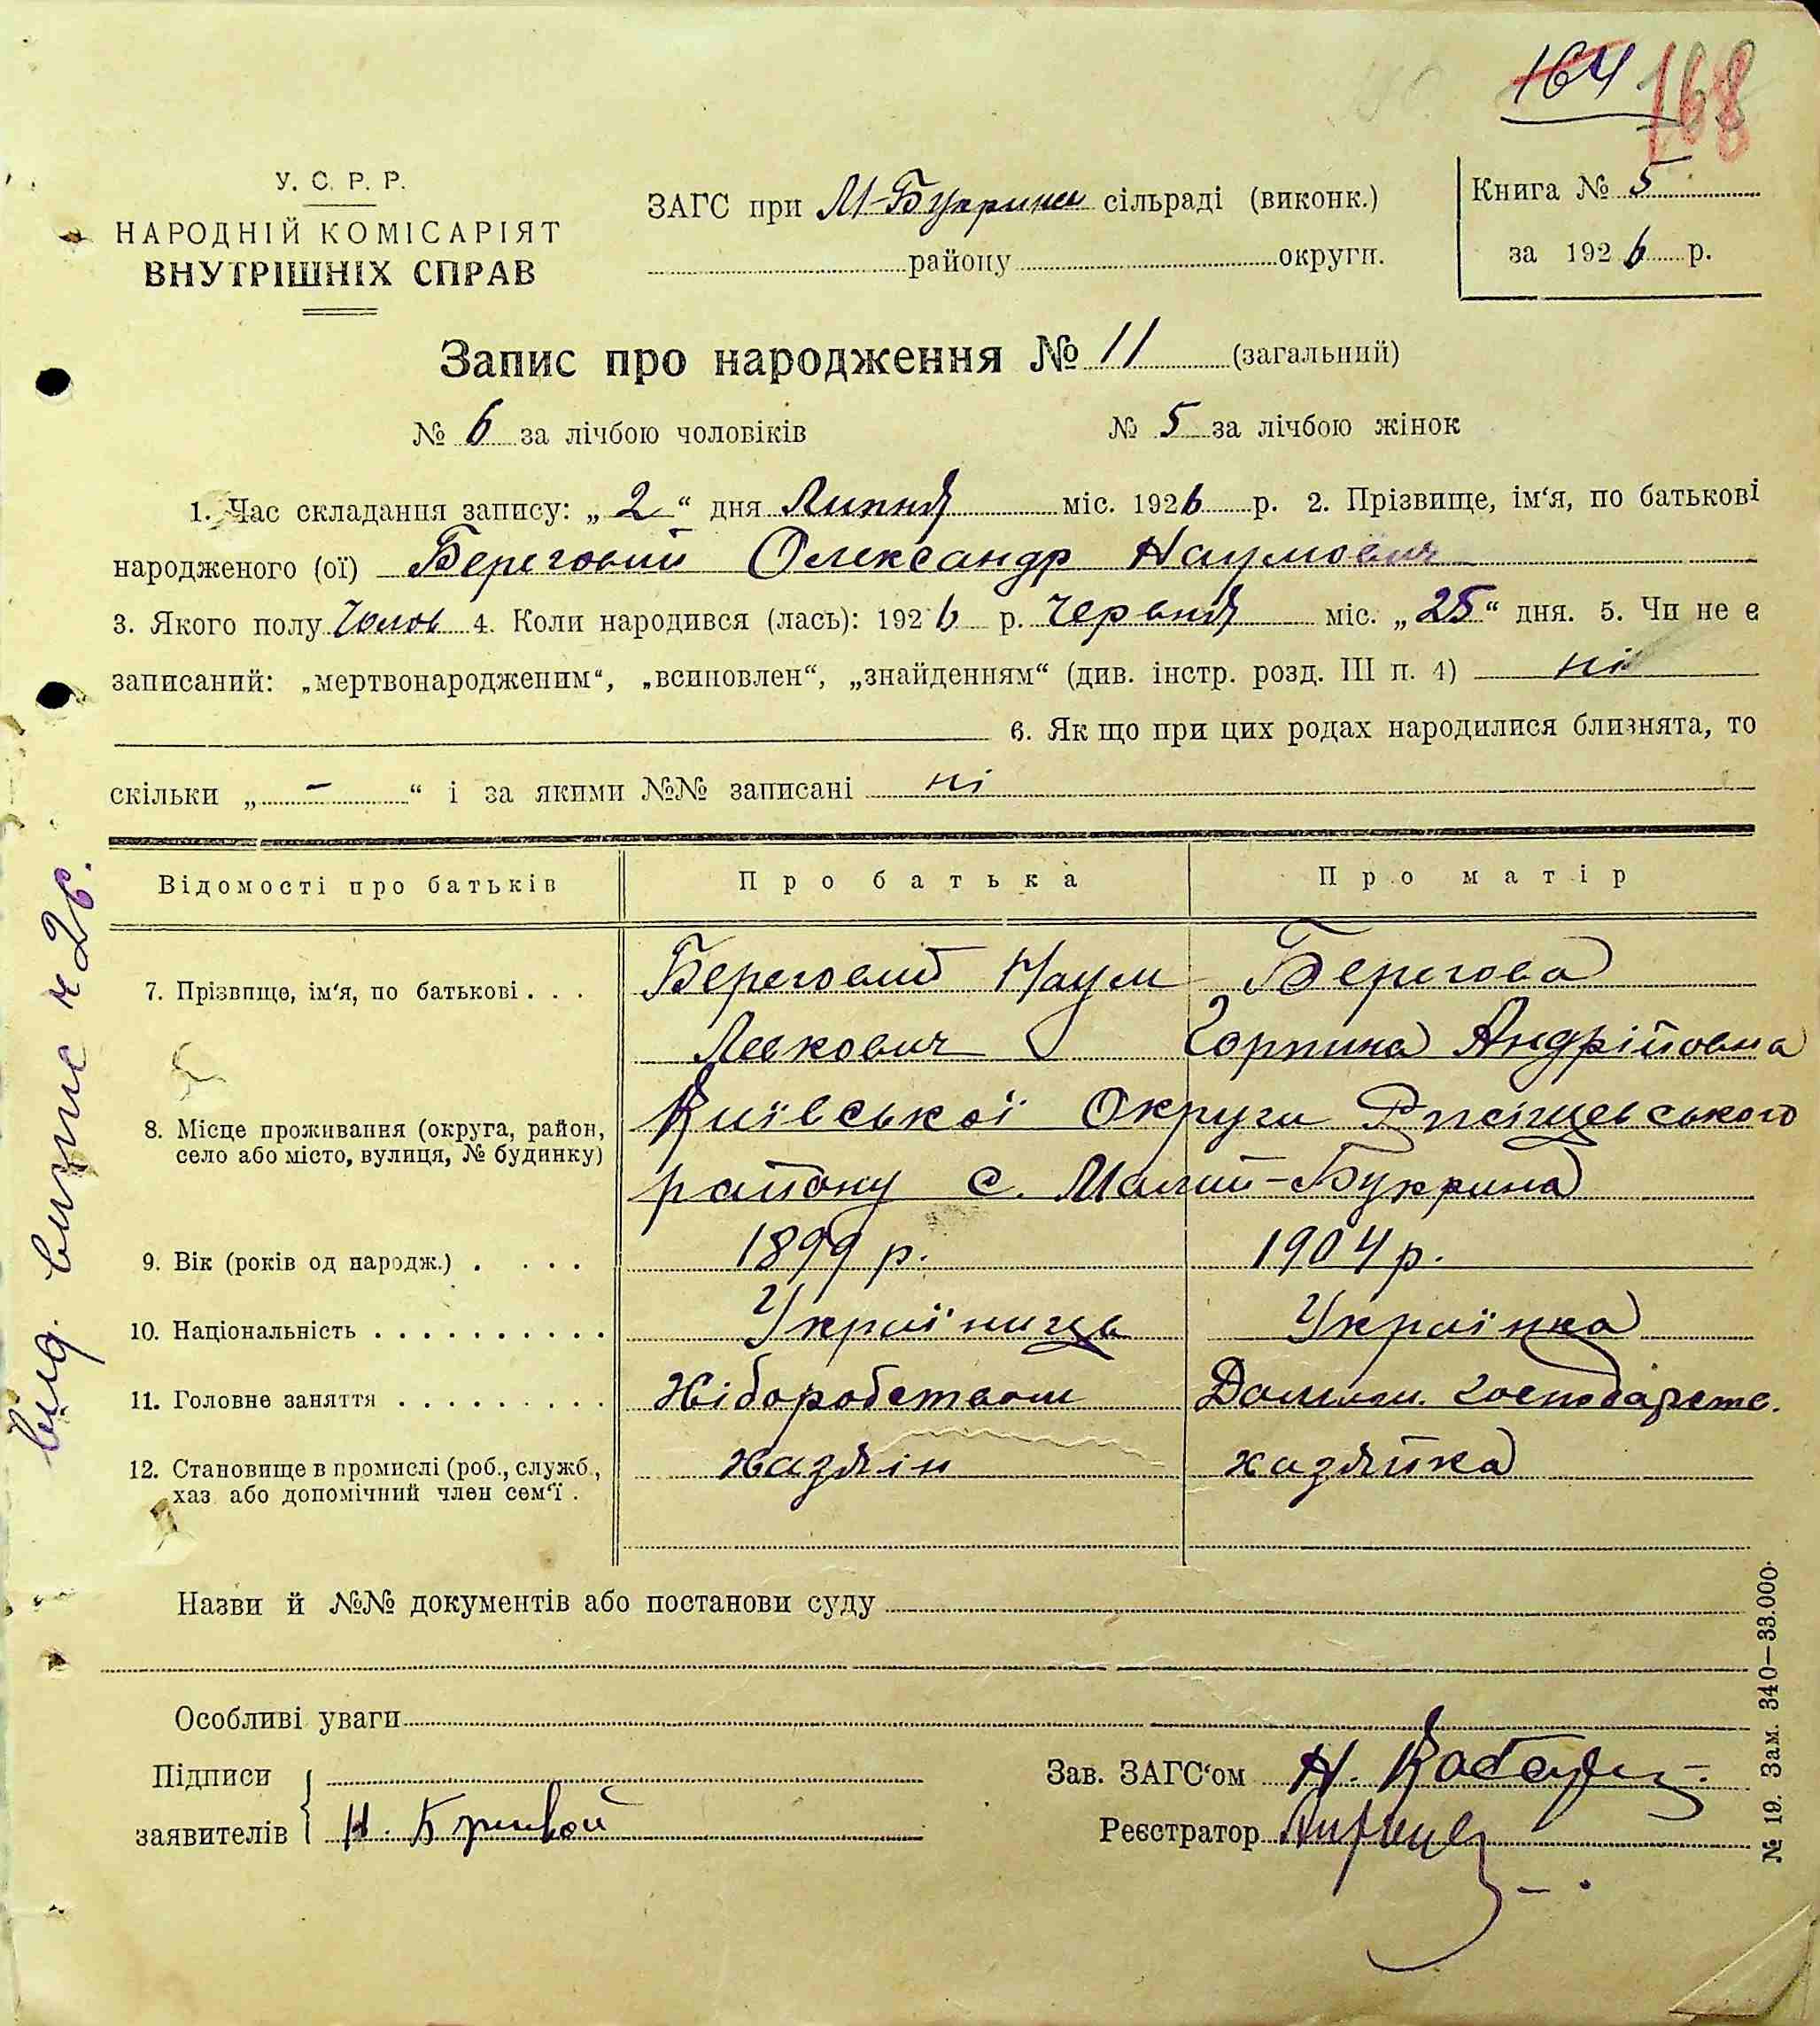 164 168
У. С. Р. Р.
НАРОДНІЙ КОМІСАРІЯТ
ВНУТРІШНІХ СПРАВ
ЗАГС при М-Букрини сільраді (виконк.)
району округи.
Книга № 5
за 1926 р.
Запис про народження № 11 (загальний)
№ 6 за лічбою чоловіків № 5 за лічбою жінок
1. Час складання запису: „2“ дня Липня міс. 1926 р. 2. Прізвище, ім‘я, по батькові
народженого (ої) Береговий Олександр Наумович
3. Якого полу Чолов 4. Коли народився (лась): 1926 р. Червня міс. „25“ дня. 5. Чи не є
записаний: „мертвонародженим“, „всиновлен“, „знайденням“ (див. інстр. розд. III п. 4) ні
6. Як що при цих родах народилися близнята, то
скільки „ - “ і за якими №№ записані ні
Відомості про батьків Про батька Про матір
7. Прізвище, ім‘я, по батькові . . . Береговий Наум Берегова
Левкович Горпина Андрійовна
8. Місце проживання (округа, район, Київської Округи Ржищевського
село або місто, вулиця, № будинку) району с. Малий-Букрина
9. Вік (років од народж.) . . . . 1899 р. 1904 р.
10. Національність . . . . . . . . . . Україниць Українка
11. Головне заняття . . . . . . . . . Хіборобством Домаш. господарств.
12. Становище в промислі (роб., служб., хазяін хазяйка
хаз. або допомічний член сем‘ї .
Назви й №№ документів або постанови суду
Особливі уваги
Підписи
заявителів Н. Бривой
Зав. ЗАГС‘ом Н.
Реєстратор
№ 19. Зам. 340—33.000.
вид. випис ч 26.